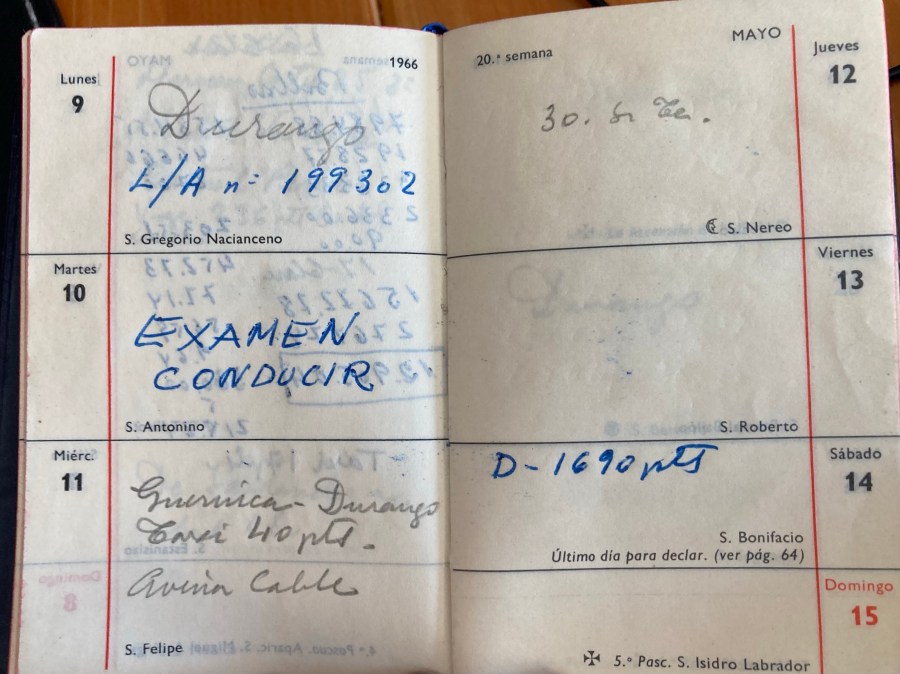 1966
Lunes
9
Durango
L/A n= 199302
S. Gregorio Nacianceno
Martes
10
EXAMEN
CONDUCIR
S. Antonino
Miérc.
11
Guernica - Durango
Taxi 40 pts.
Cable
S. Felipe
20.ª semana
MAYO
Jueves
12
30.
S. Nereo
Viernes
13
S. Roberto
Sábado
14
D - 1690 pts
S. Bonifacio
Último día para declar. (ver pág. 64)
Domingo
15
5.º Pasc. S. Isidro Labrador